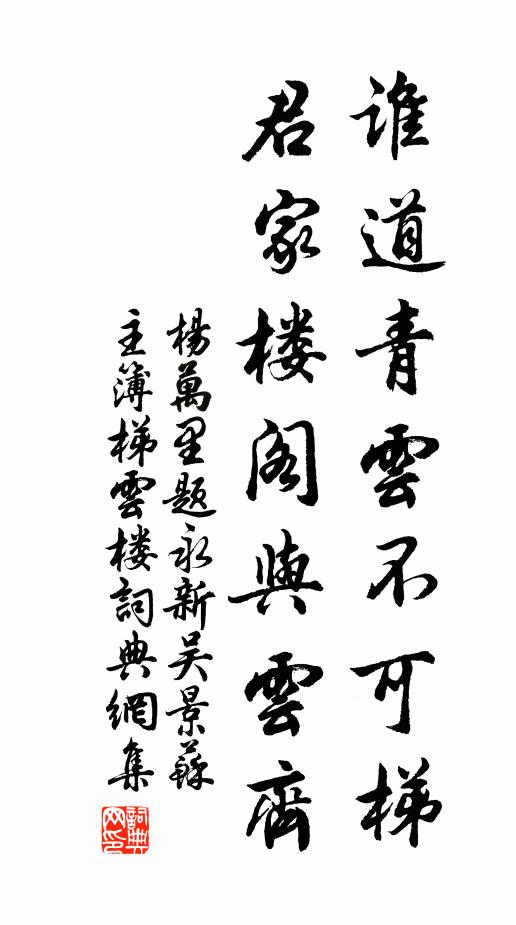 谁道青雲不可梯
君家楼阁與雲齊
楊萬里题永新吴景蘇
主簿梯雲楼詞典網集
詞典
网印